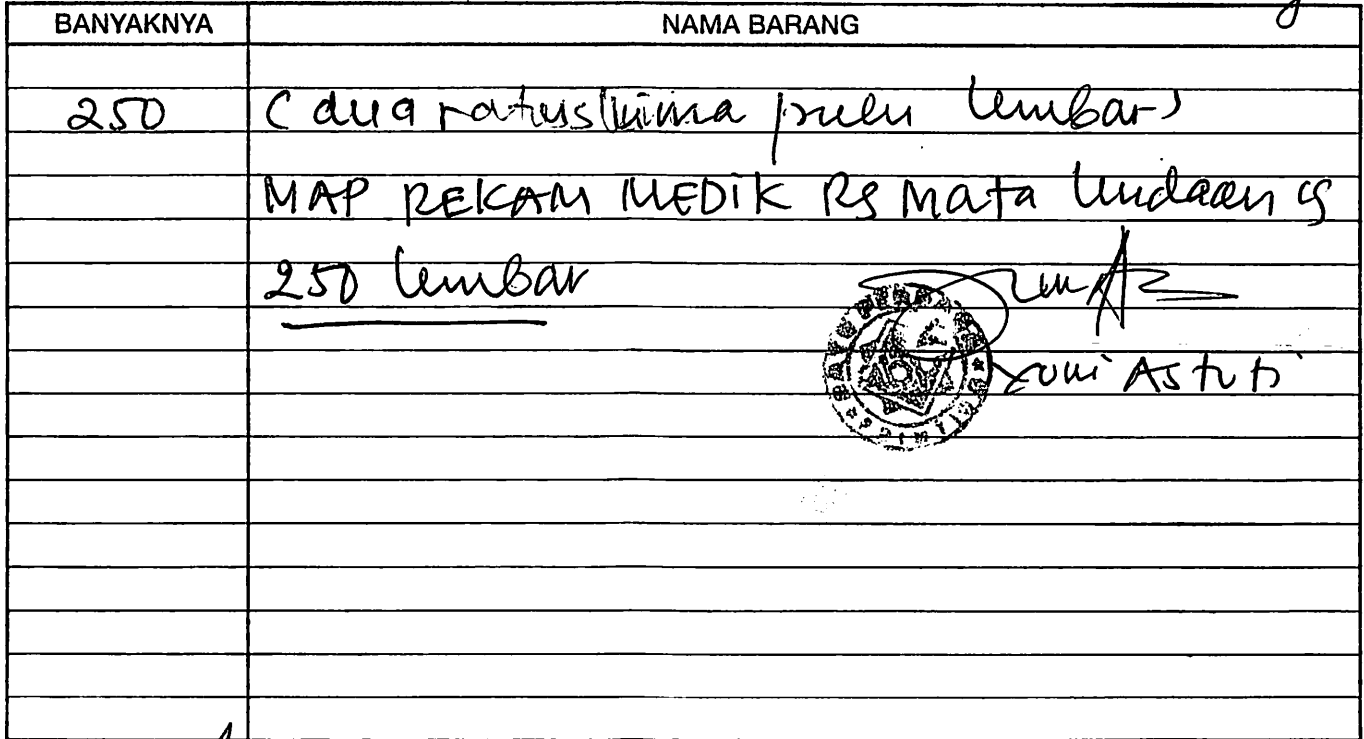 BANYAKNYA NAMA BARANG
250 (dua ratus lima pulu lembar)
MAP REKAM MEDIK RS Mata Undaan
250 lembar
Astuti